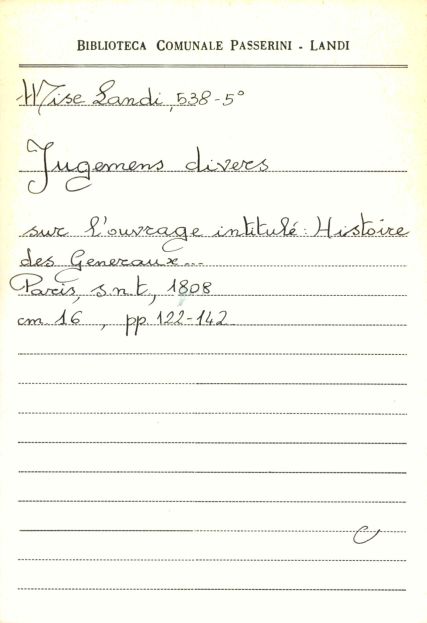 BIBLIOTECA COMUNALE PASSERINI - LANDI
Misc Landi, 538-5°
Jugemens divers
sur l'ouvrage intitulé: Histoire
des Generaux...
Paris, s.n.t., 1808
cm 16 , pp 122-142
C